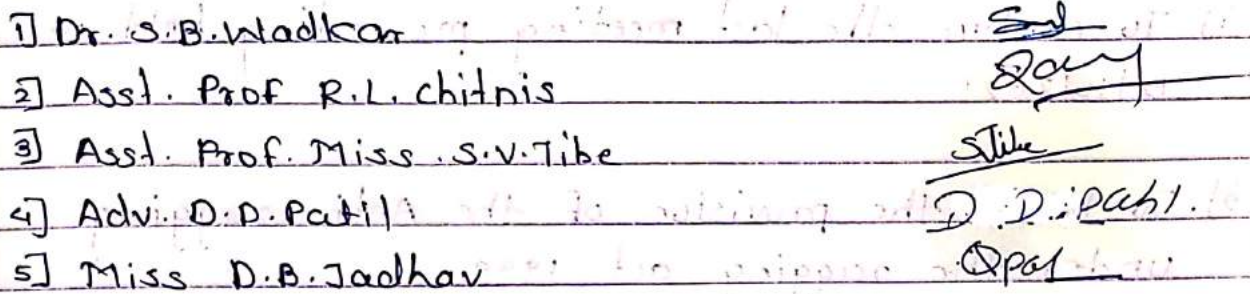 1] Dr. S.B. Wadkar
2] Asst. Prof R.L. Chitnis
3] Asst. Prof. Miss. S.V. Tibe STibe
4] Adv. D.D. Patil D.D. Patil.
5] Miss D.B. Jadhav